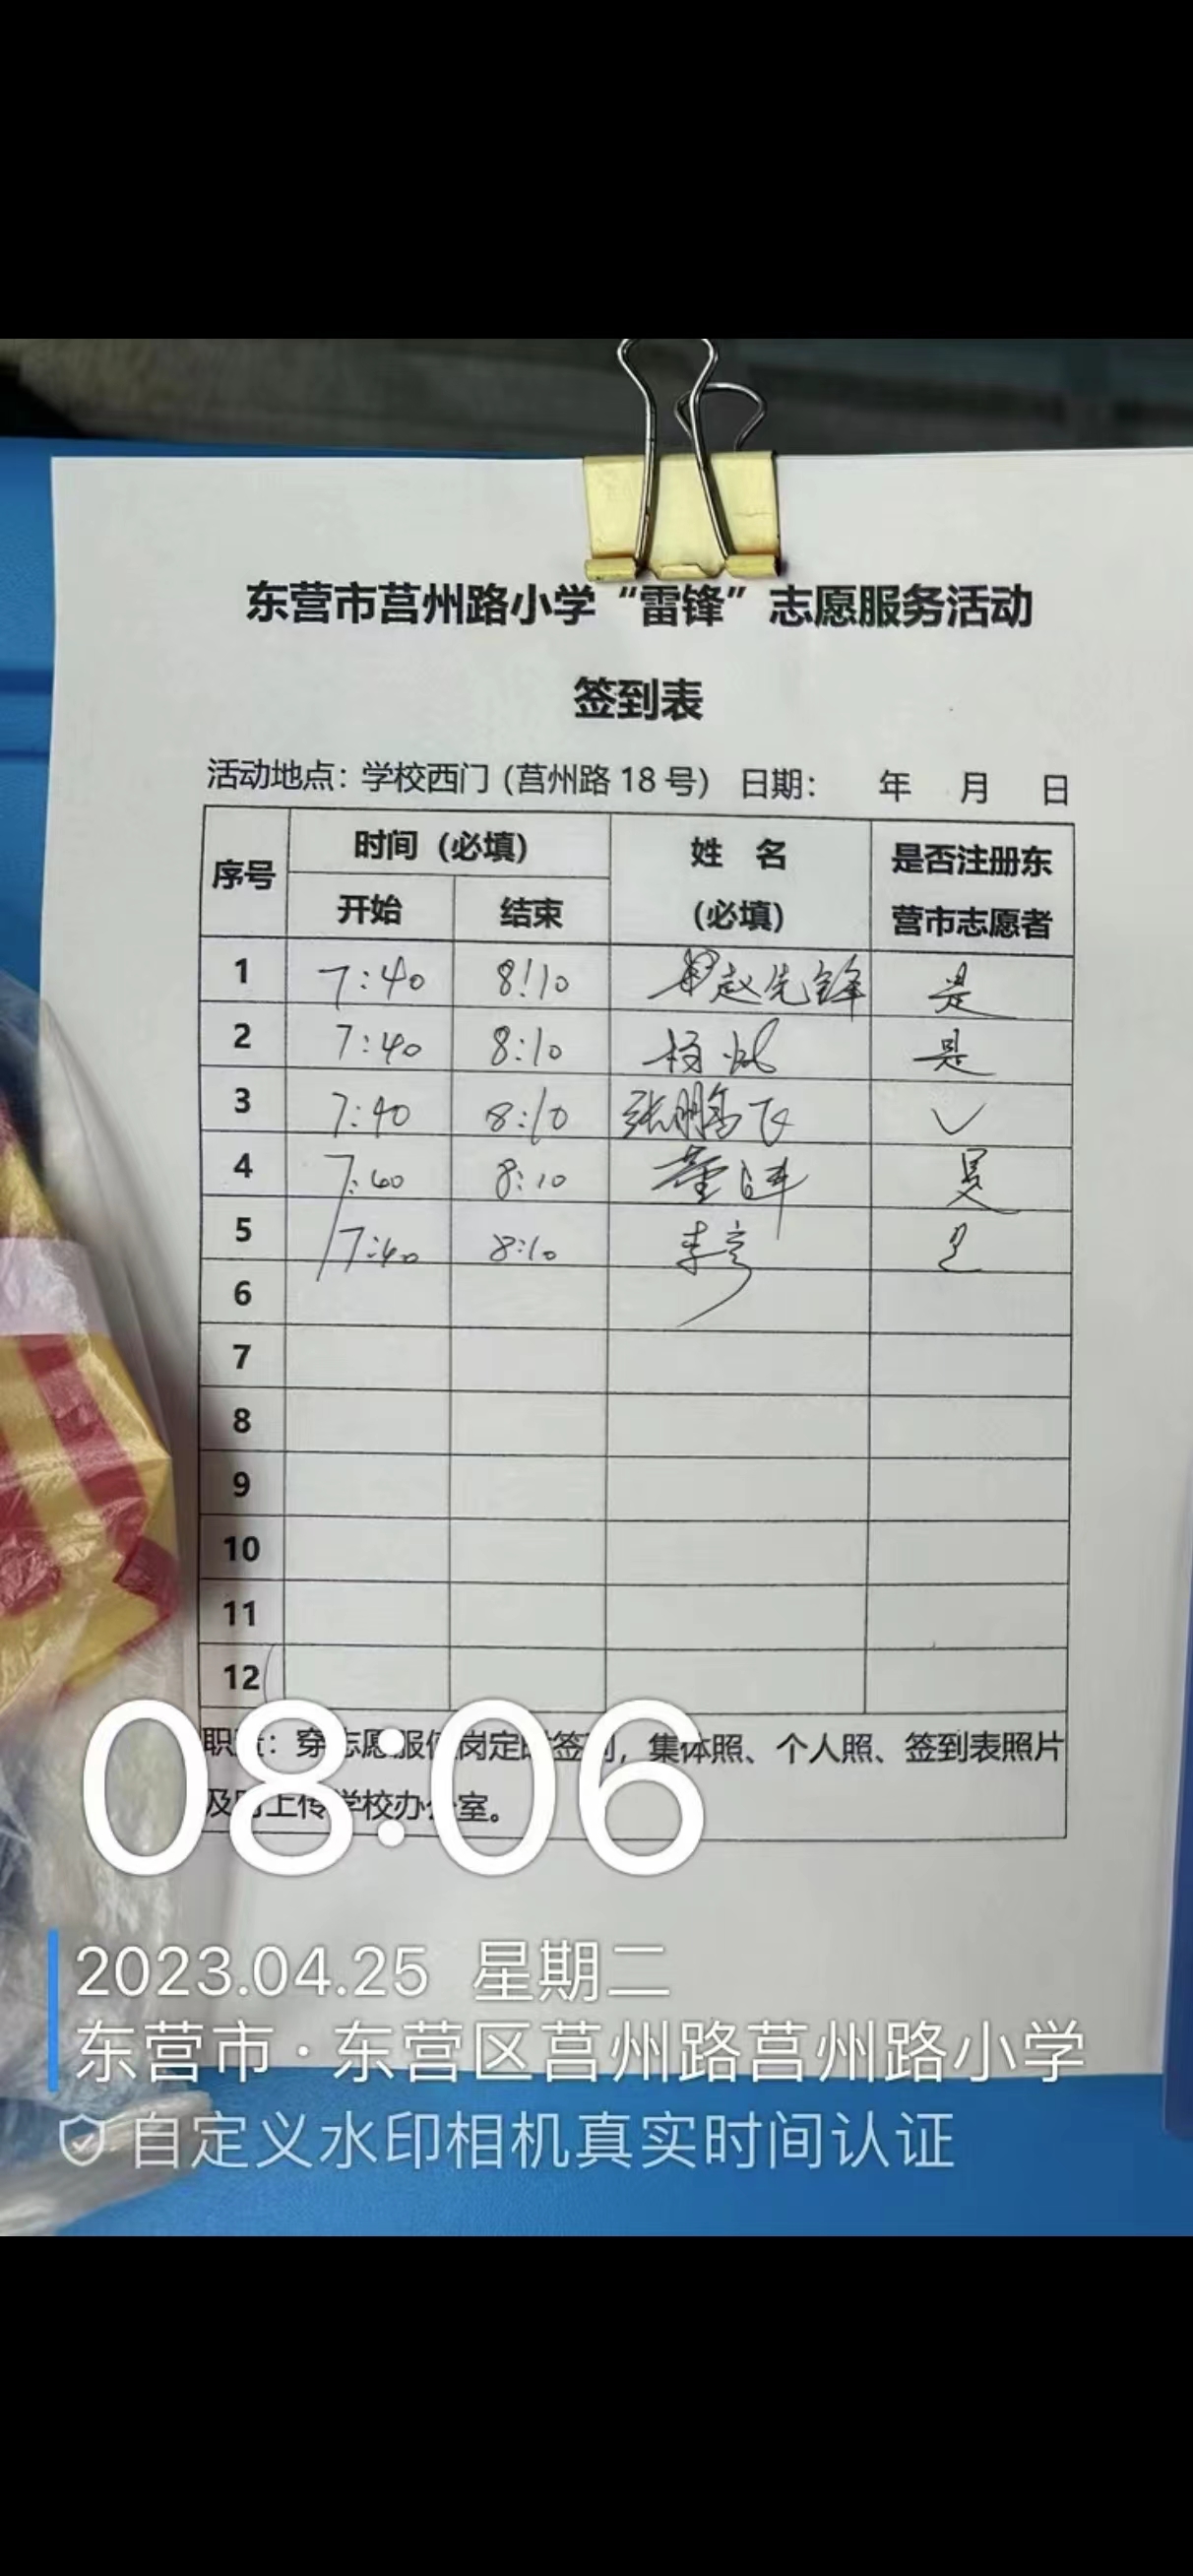 东营市莒州路小学“雷锋”志愿服务活动
签到表
活动地点：学校西门（莒州路 18 号） 日期： 年 月 日
序号 时间（必填） 姓 名（必填） 是否注册东营市志愿者
开始 结束
1 7:40 8:10 赵先锋 是
2 7:40 8:10 杨 是
3 7:40 8:10 张鹏飞 ✓
4 7:40 8:10 董 是
5 7:40 8:10 李亮 是
6
7
8
9
10
11
12
职责：穿志愿服值岗定时签到，集体照、个人照、签到表照片
及时上传学校办公室。
08:06
2023.04.25 星期二
东营市·东营区莒州路莒州路小学
自定义水印相机真实时间认证